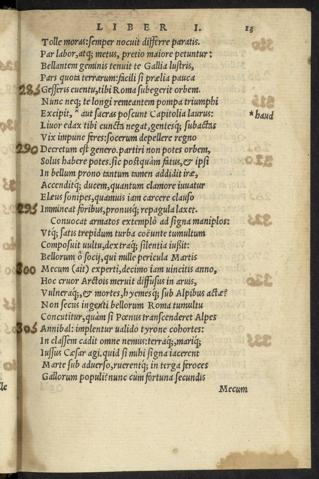 LIBER I. 15
Tolle moras: semper nocuit differre paratis.
Par labor, atq; metus, pretio maiore petuntur:
Bellantem geminis tenuit te Gallia lustris,
Pars quota terrarum: facili si prælia pauca
285 Gesseris euentu, tibi Roma subegerit orbem.
Nunc neq; te longi remeantem pompa triumphi
Excipit, * aut sacras poscunt Capitolia laurus: * haud
Liuor edax tibi cuncta negat, gentesq; subactas
Vix impune feres: socerum depellere regno
290 Decretum est genero. partiri non potes orbem,
Solus habere potes. sic postquàm fatus, & ipsi
In bellum prono tantum tamen addidit iræ,
Accenditq; ducem, quantum clamore iuuatur
Eleus sonipes, quamuis iam carcere clauso
295 Immineat foribus, pronusq; repagula laxet.
Conuocat armatos extemplò ad signa maniplos:
Vtq; satis trepidum turba coëunte tumultum
Composuit uultu, dextraq; silentia iußit:
Bellorum ô socij, qui mille pericula Martis
300 Mecum (ait) experti, decimo iam uincitis anno,
Hoc cruor Arctois meruit diffusus in aruis,
Vulneraq;, & mortes, hyemesq; sub Alpibus actæ?
Non secus ingenti bellorum Roma tumultu
Concutitur, quàm si Pœnus transcenderet Alpes
305 Annibal: implentur ualido tyrone cohortes:
In classem cadit omne nemus: terraq;, mariq;
Iussus Cæsar agi. quid si mihi signa iacerent
Marte sub aduerso, ruerentq; in terga feroces
Gallorum populi? nunc cùm fortuna secundis
Mecum